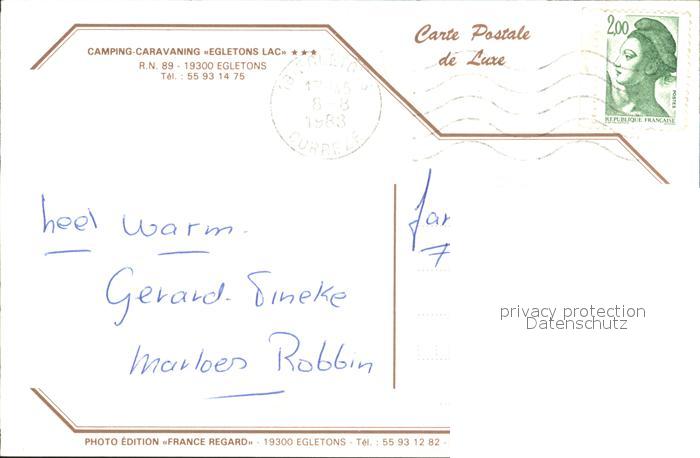 CAMPING-CARAVANING «EGLETONS LAC» ★★★
R.N. 89 - 19300 EGLETONS
Tél. : 55 93 14 75
Carte Postale
de Luxe
2,00
POSTES
REPUBLIQUE FRANÇAISE
8-8
1988
CORREZE
heel warm.
Gerard. Tineke
Marloes Robbin
7
privacy protection
Datenschutz
PHOTO ÉDITION «FRANCE REGARD» - 19300 EGLETONS - Tél. : 55 93 12 82 -